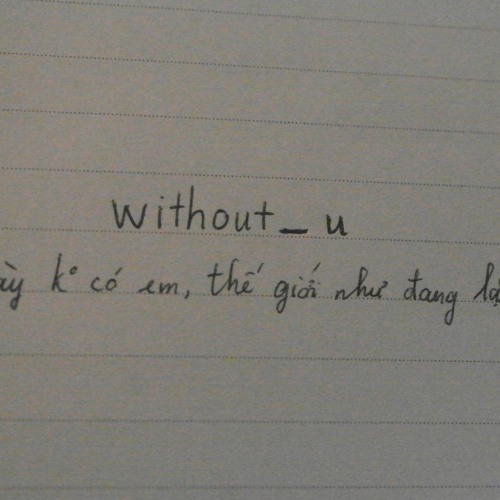 without_u
k° có em, thế giới như đang